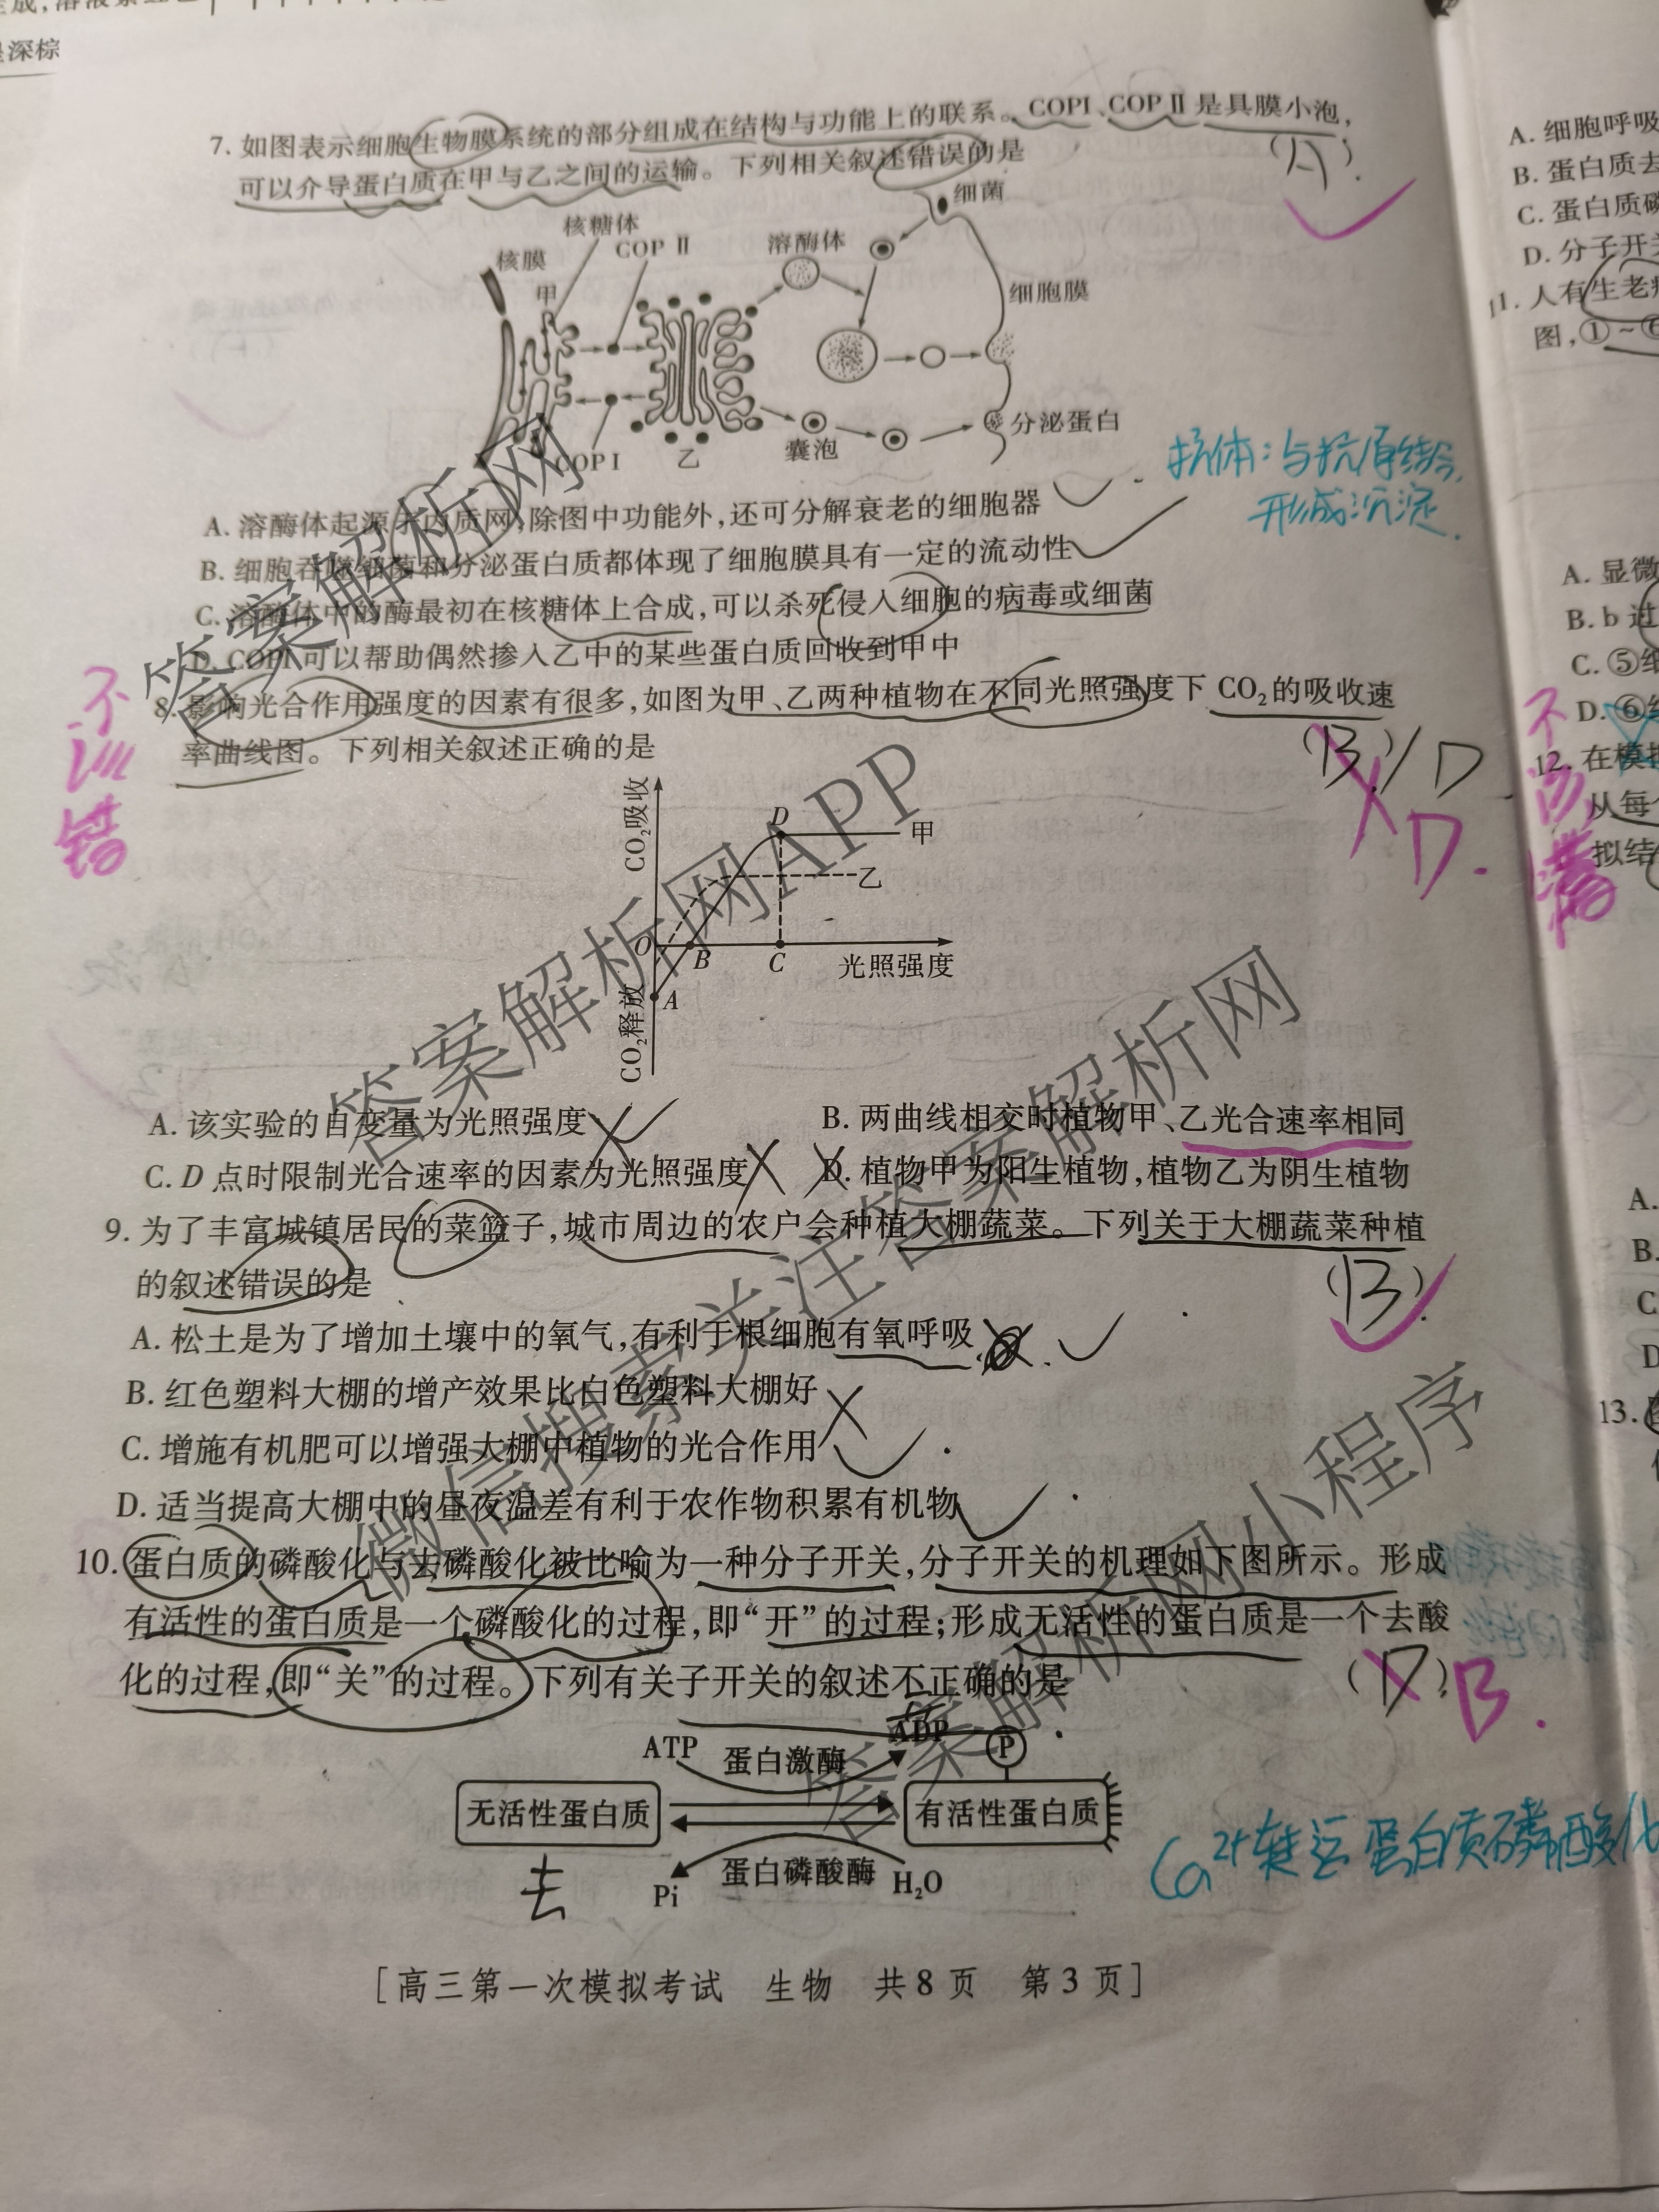 是深棕
7. 如图表示细胞生物膜系统的部分组成在结构与功能上的联系。COPⅠ、COPⅡ是具膜小泡，
可以介导蛋白质在甲与乙之间的运输。下列相关叙述错误的是
(A).
核膜
核糖体
甲
COPⅡ
溶酶体
细菌
细胞膜
COPⅠ
乙
囊泡
分泌蛋白
抗体：与抗原结合，
形成沉淀.
A. 溶酶体起源于内质网，除图中功能外，还可分解衰老的细胞器
B. 细胞吞噬细菌和分泌蛋白质都体现了细胞膜具有一定的流动性
C. 溶酶体中的酶最初在核糖体上合成，可以杀死侵入细胞的病毒或细菌
D. COPⅠ可以帮助偶然掺入乙中的某些蛋白质回收到甲中
8. 影响光合作用强度的因素有很多，如图为甲、乙两种植物在不同光照强度下 CO₂的吸收速
率曲线图。下列相关叙述正确的是
(B)/D
D.
不
错
CO₂吸收
CO₂释放
O
A
B
C
D
甲
乙
光照强度
A. 该实验的自变量为光照强度
B. 两曲线相交时植物甲、乙光合速率相同
C. D 点时限制光合速率的因素为光照强度
D. 植物甲为阳生植物，植物乙为阴生植物
9. 为了丰富城镇居民的菜篮子，城市周边的农户会种植大棚蔬菜。下列关于大棚蔬菜种植
的叙述错误的是
(B).
A. 松土是为了增加土壤中的氧气，有利于根细胞有氧呼吸
B. 红色塑料大棚的增产效果比白色塑料大棚好
C. 增施有机肥可以增强大棚中植物的光合作用
D. 适当提高大棚中的昼夜温差有利于农作物积累有机物
10. 蛋白质的磷酸化与去磷酸化被比喻为一种分子开关，分子开关的机理如下图所示。形成
有活性的蛋白质是一个磷酸化的过程，即“开”的过程；形成无活性的蛋白质是一个去酸
化的过程，即“关”的过程。下列有关子开关的叙述不正确的是
(D).
B.
ATP
蛋白激酶
ADP
P
无活性蛋白质
有活性蛋白质
Pi
蛋白磷酸酶
H₂O
去
Ca²⁺转运蛋白质磷酸化
[高三第一次模拟考试 生物 共8页 第3页]
A. 细胞呼吸
B. 蛋白质去
C. 蛋白质磷
D. 分子开关
11. 人有生老病
图，①~⑥
A. 显微
B. b 过
C. ⑤细
D. ⑥
12. 在模拟
从每个
拟结
不
A.
B.
C
D
13.
答案解析网
答案解析网APP
微信搜索关注答案解析网
答案解析网小程序